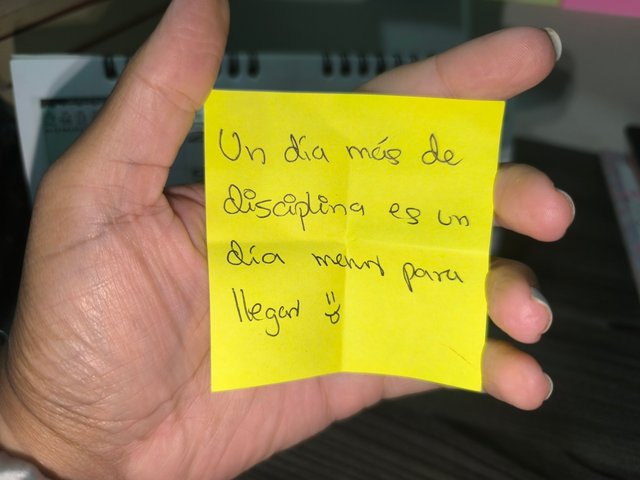 Un día más de
disciplina es un
día menos para
llegar